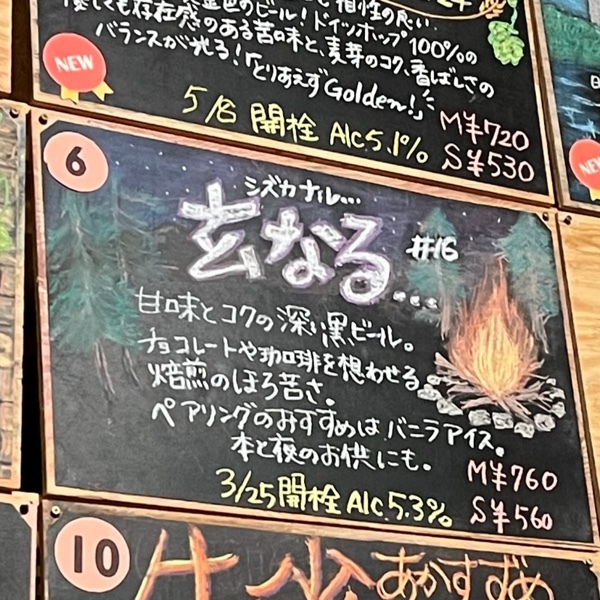 金色のビール!ドイツホップ100%の
存在感のある苦味と、麦芽のコク、香ばしさの
バランスが光る!「とりあえずGolden!」
NEW
5/8 開栓 Alc5.1%
M¥720
S¥530
6
シズカナル…
玄なる… #16
甘口味とコクの深い黒ビール。
チョコレートや珈琲を想わせる
焙煎のほろ苦さ。
ペアリングのおすすめはバニラアイス。
本と夜のお供にも。
3/25開栓 Alc5.3%
M¥760
S¥560
10
おかすずめ